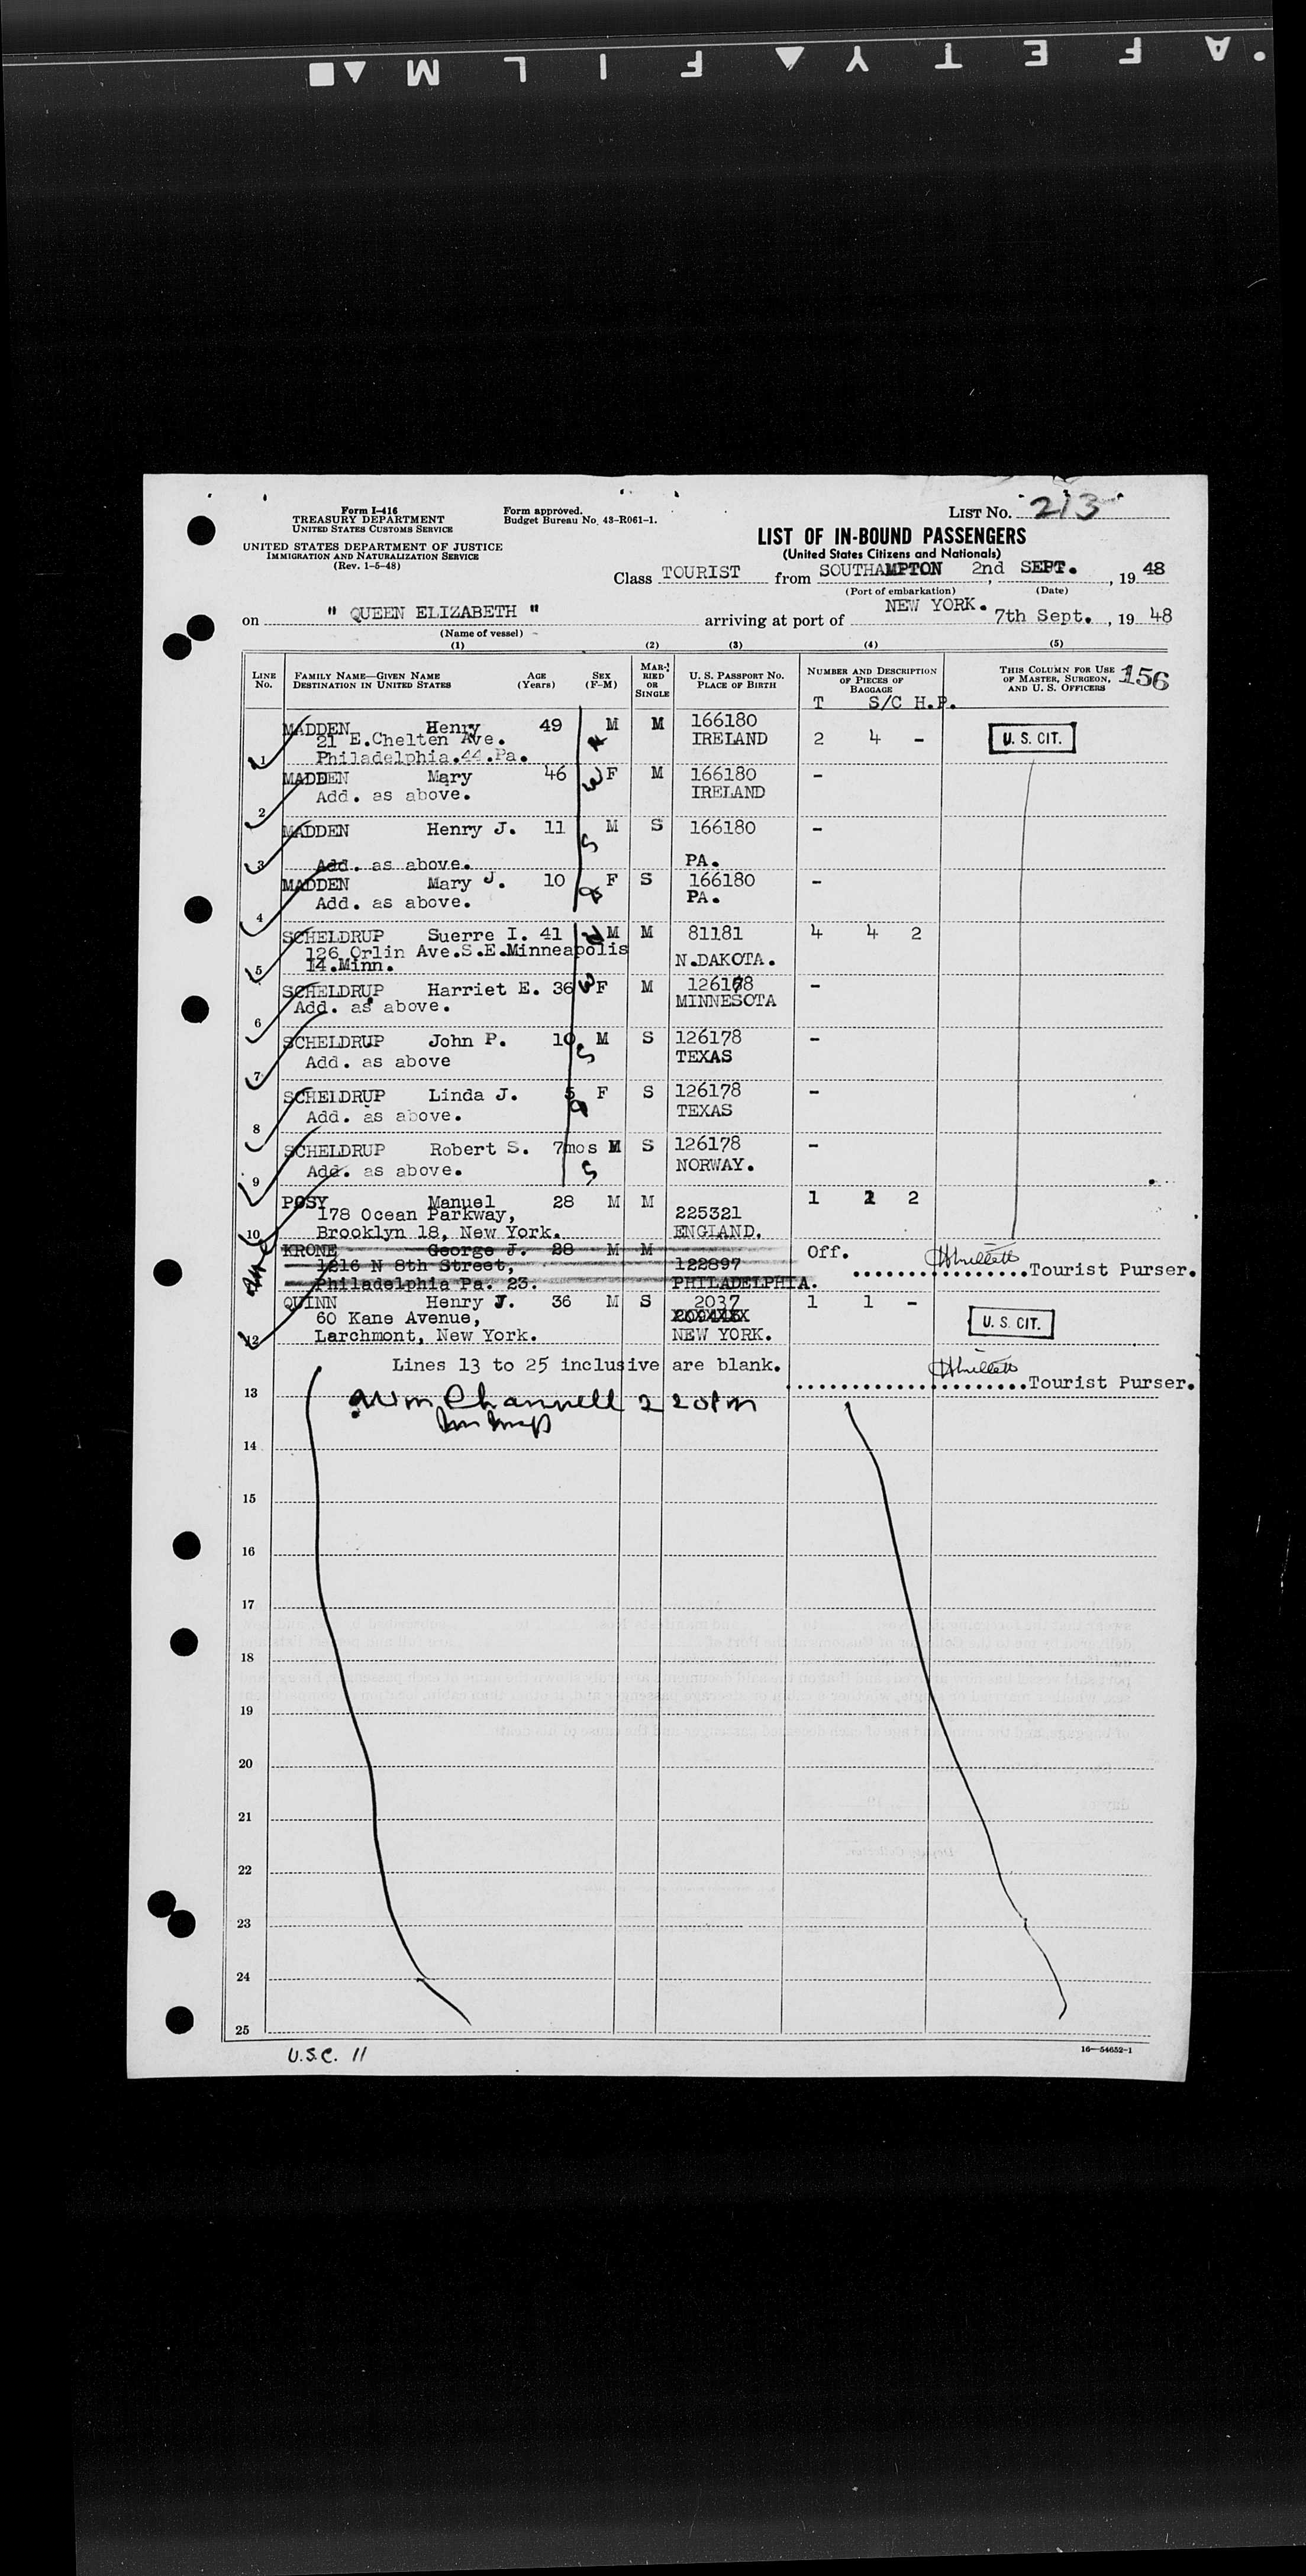 SAFETY FILM
Form I-416
TREASURY DEPARTMENT
UNITED STATES CUSTOMS SERVICE
UNITED STATES DEPARTMENT OF JUSTICE
IMMIGRATION AND NATURALIZATION SERVICE
(Rev. 1-5-48)
Form approved.
Budget Bureau No. 43-R061-1.
LIST NO. 213
LIST OF IN-BOUND PASSENGERS
(United States Citizens and Nationals)
Class TOURIST from SOUTHAMPTON 2nd SEPT., 19 48
(Port of embarkation) (Date)
on " QUEEN ELIZABETH " arriving at port of NEW YORK. 7th Sept., 19 48
(Name of vessel)
(1) (2) (3) (4) (5)
LINE No.
FAMILY NAME—GIVEN NAME
DESTINATION IN UNITED STATES
AGE
(Years)
SEX
(F-M)
MARRIED OR SINGLE
U. S. PASSPORT NO.
PLACE OF BIRTH
NUMBER AND DESCRIPTION OF PIECES OF BAGGAGE
T S/C H.P.
THIS COLUMN FOR USE OF MASTER, SURGEON, AND U. S. OFFICERS
156
1 MADDEN Henry 49 M M 166180 2 4 -
21 E.Chelten Ave. IRELAND
Philadelphia.44.Pa.
U. S. CIT.
2 MADDEN Mary 46 F M 166180 -
Add. as above. IRELAND
3 MADDEN Henry J. 11 M S 166180 -
Add. as above. PA.
4 MADDEN Mary J. 10 F S 166180 -
Add. as above. PA.
5 SCHELDRUP Suerre I. 41 M M 81181 4 4 2
126 Orlin Ave.S.E.Minneapolis N.DAKOTA.
14.Minn.
6 SCHELDRUP Harriet E. 36 F M 126178 -
Add. as above. MINNESOTA
7 SCHELDRUP John P. 10 M S 126178 -
Add. as above TEXAS
8 SCHELDRUP Linda J. 5 F S 126178 -
Add. as above. TEXAS
9 SCHELDRUP Robert S. 7mos M S 126178 -
Add. as above. NORWAY.
10 POSY Manuel 28 M M 225321 1 2
178 Ocean Parkway,
Brooklyn 18, New York. ENGLAND.
KRONE George J. 28 M M 122897 Off.
1816 N 8th Street,
Philadelphia Pa. 23. PHILADELPHIA.
Tourist Purser.
12 QUINN Henry J. 36 M S 2037 1 1 -
60 Kane Avenue,
Larchmont, New York. NEW YORK.
U. S. CIT.
Lines 13 to 25 inclusive are blank.
Tourist Purser.
13
14
15
16
17
18
19
20
21
22
23
24
25
U.S.C. 11
16—54652-1